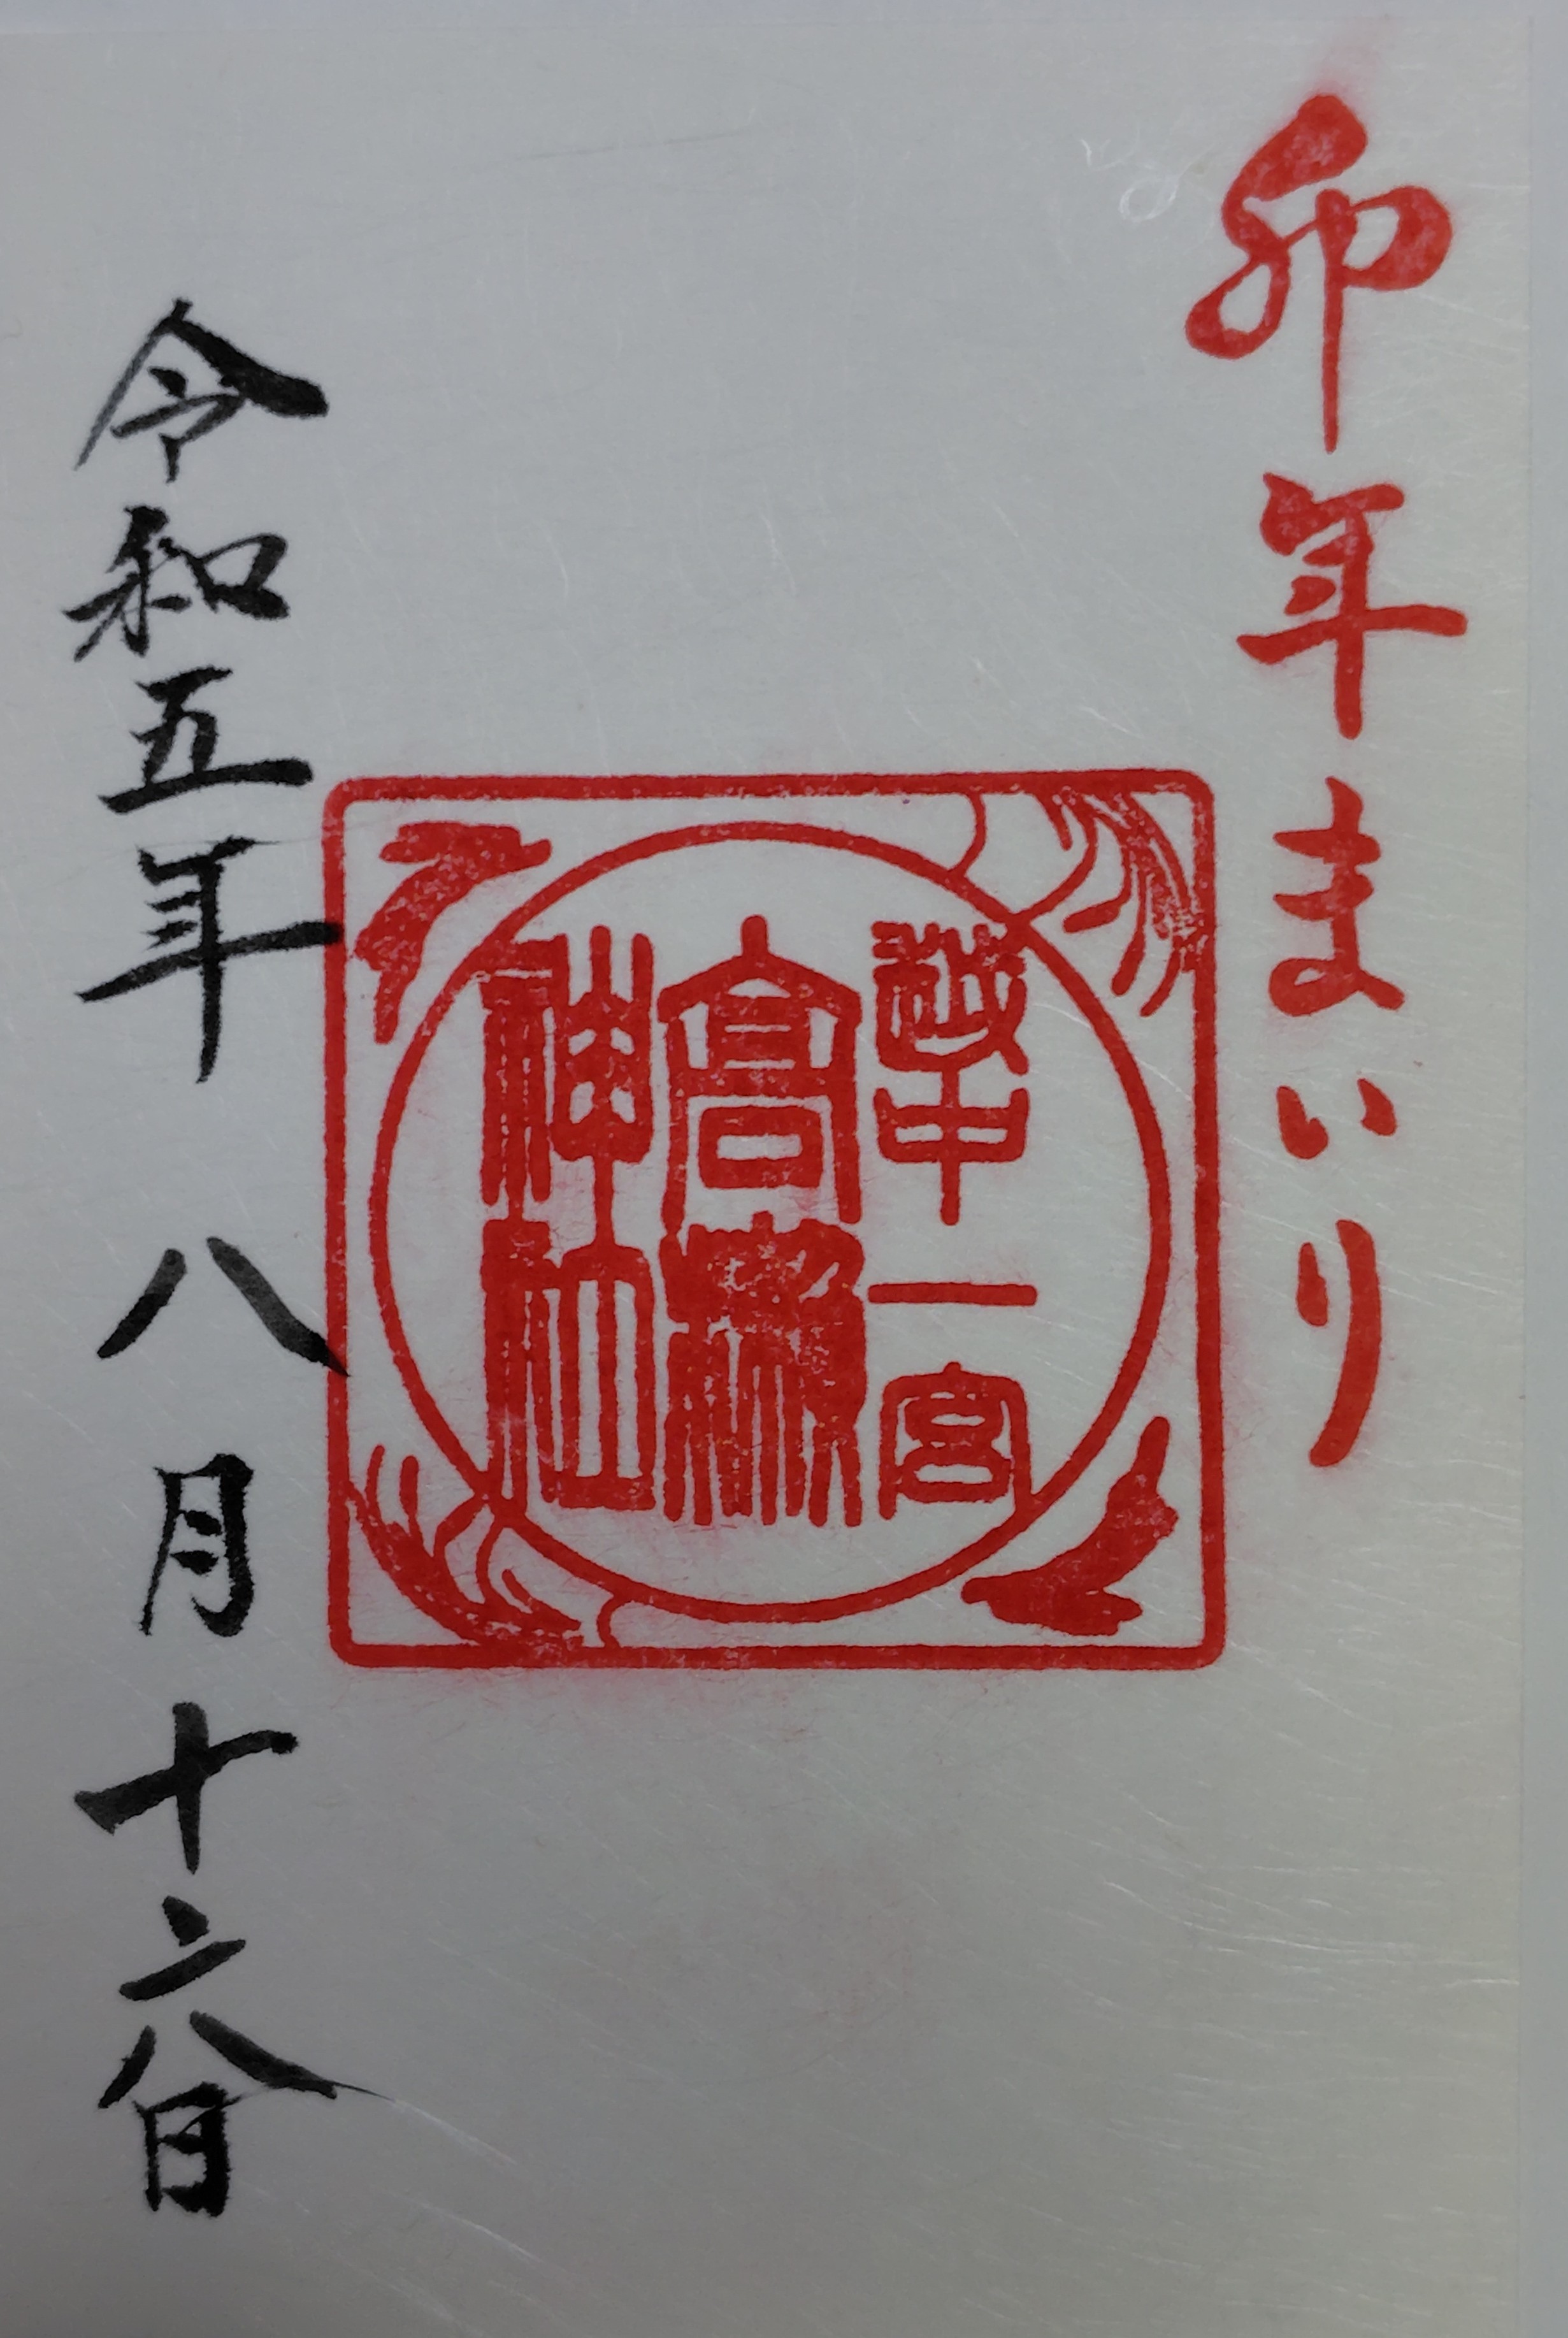 卯年まいり
越中一宮
高瀬
神社
令和五年八月十六日